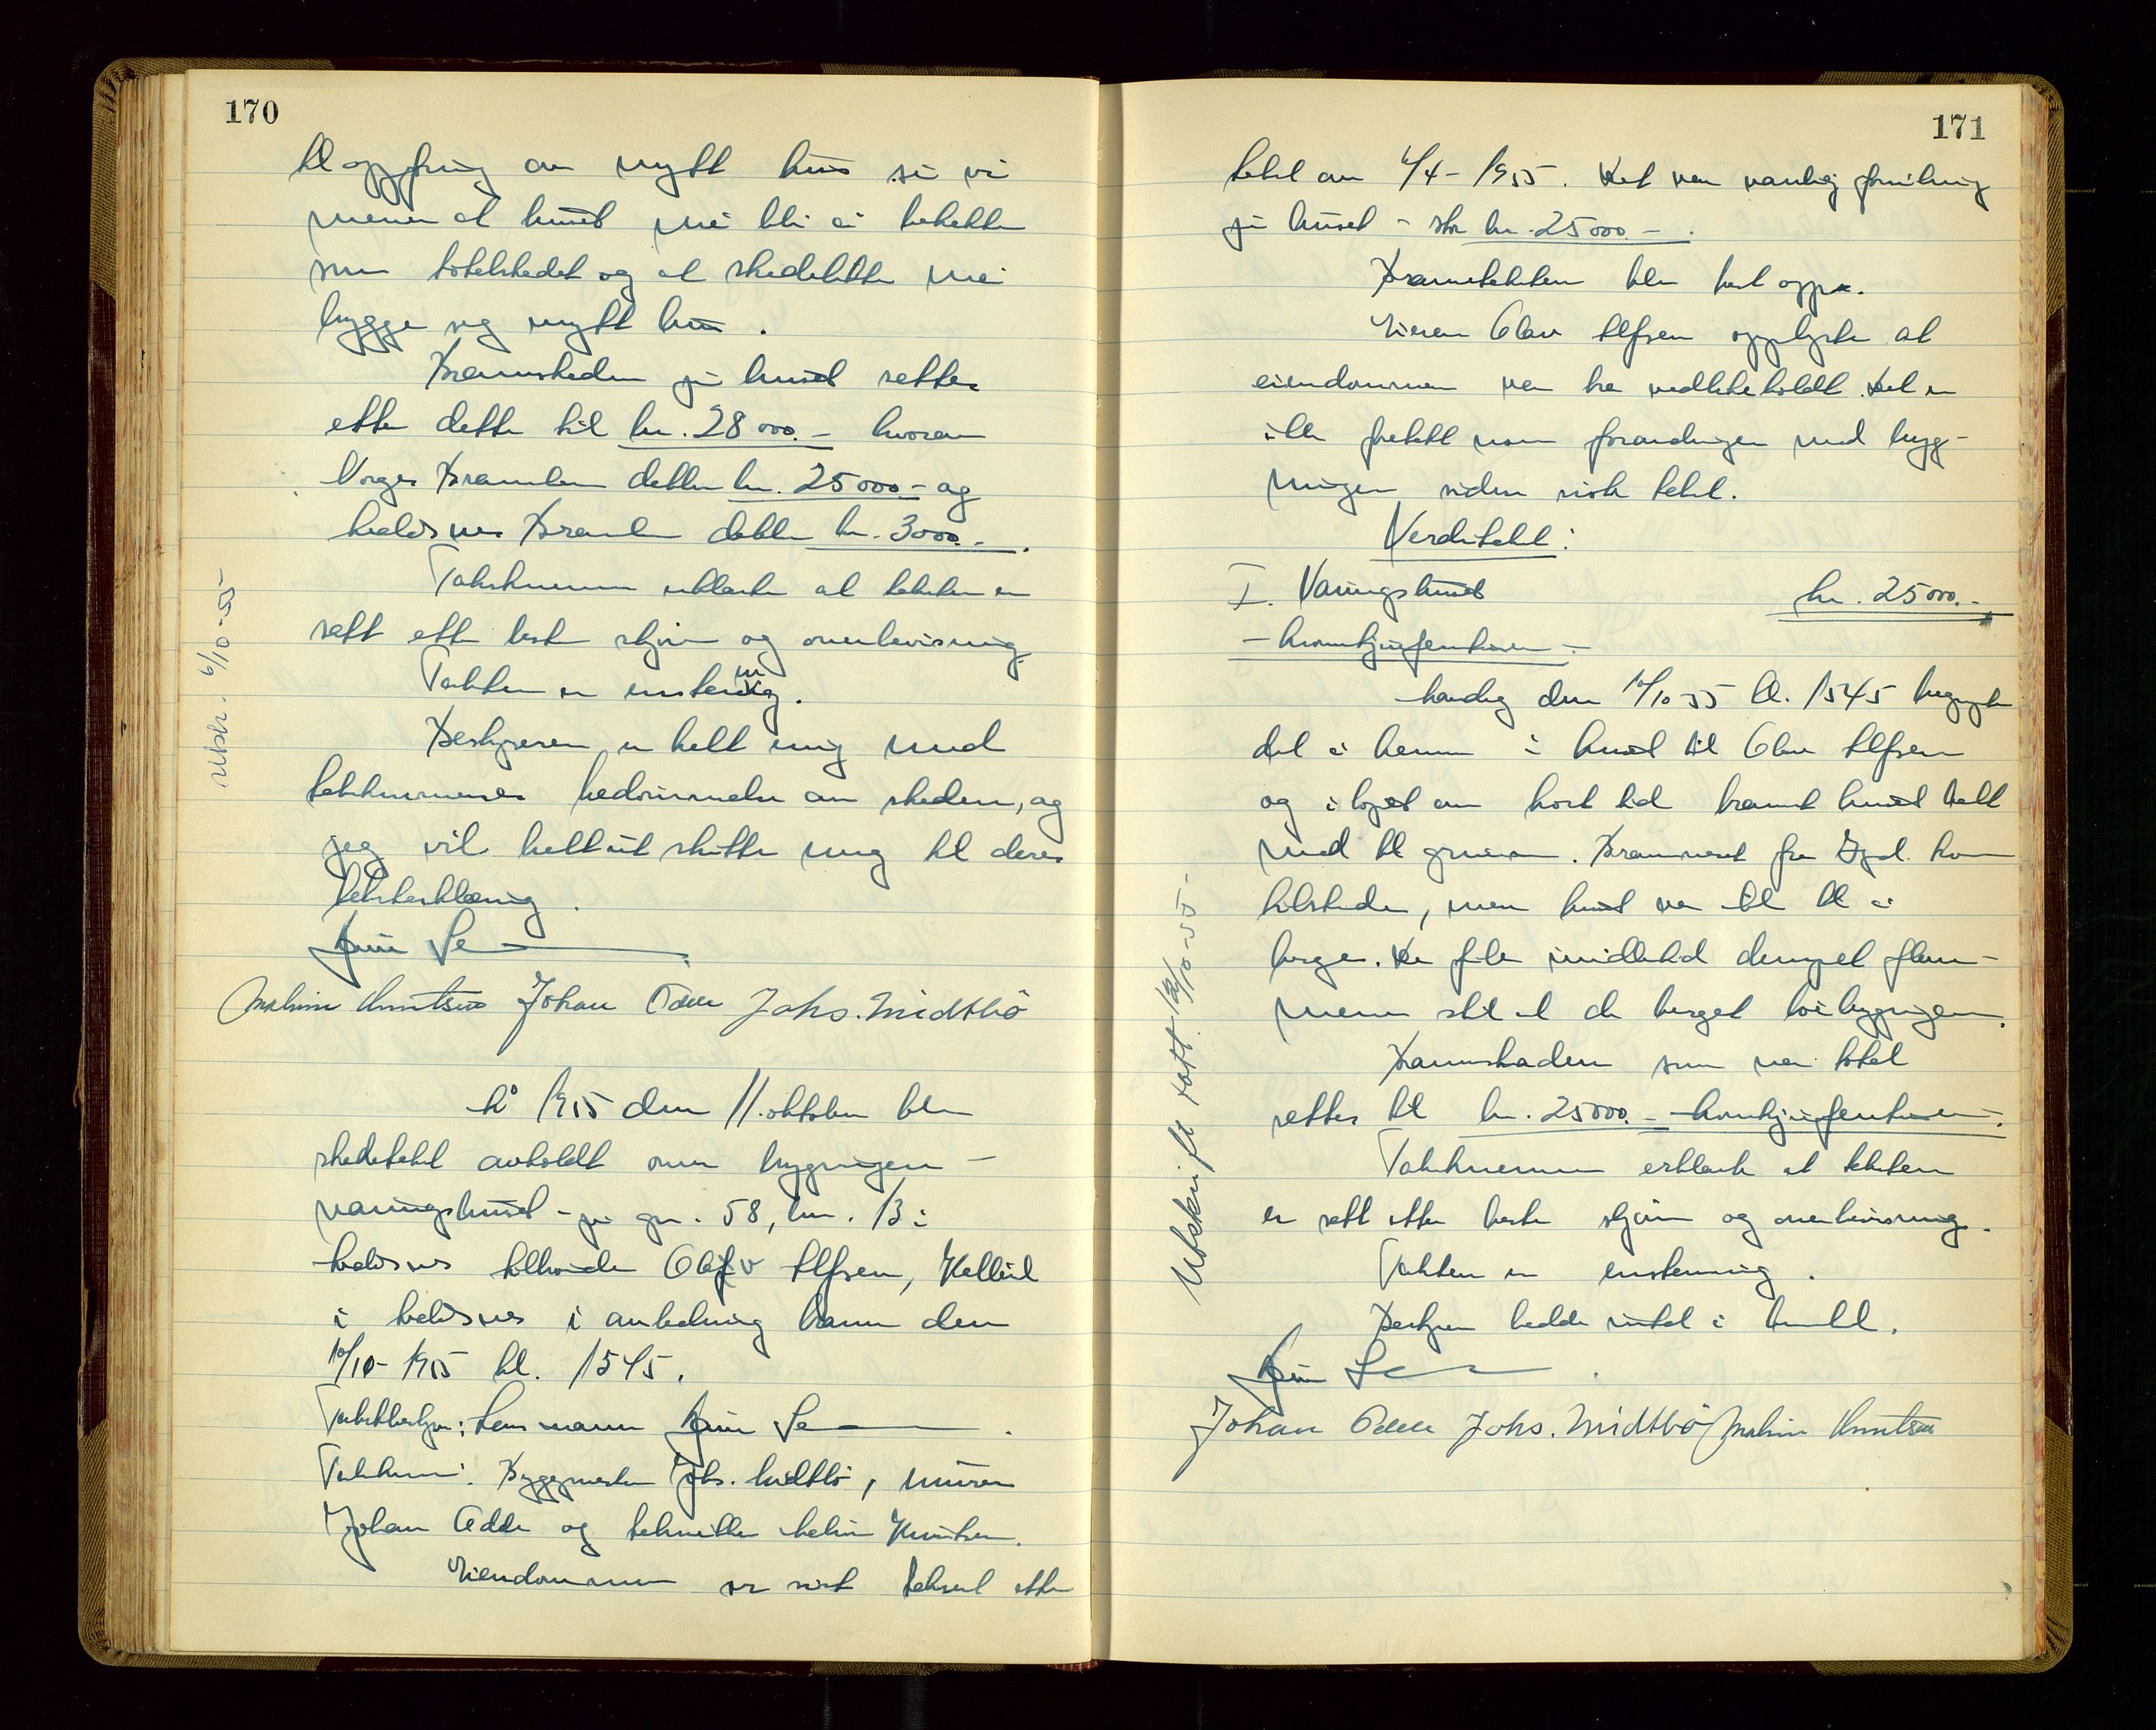 170
til oppføring av nytt hus så vi
mener at huset må bli å betrakte
som totalskadet og at skadelitte må
bygge seg nytt hus.
Brannskaden på huset settes
etter dette til kr. 28 000.- hvorav
Norges Brannkasse dekker kr. 25 000.- og
Brannkasse dekker kr. 3000.-.
Takstmennene erklærte at taksten er
satt etter beste skjønn og overbevisning.
Taksten er enstemmig.
Bestyreren er helt enig med
takstmennenes bedømmelse av skaden, og
jeg vil helt ut slutte meg til deres
taksterklæring.
Malvin Knutsen Johan Odde Johs. Midtbö
utskr. 6/10-55
År 1955 den 11. oktober ble
skadetakst avholdt over bygningen -
våningshuset - på gnr. 58, bnr. 13 i
tilhørende Olav Alfsen,
i i anledning brann den
10/10-1955 kl. 1545.
Takstbestyrer: Lensmann
Takstmenn: Byggmester Johs. Midtbö, murer
Johan Odde og Malvin Knutsen.
Eiendommen er sist taksert etter
171
takst av 6/4-1955. Det var vanlig forsikring
på huset - stor kr. 25 000.-.
Branntaksten ble lest opp.
Eieren Olav Alfsen opplyste at
eiendommen var bra vedlikeholdt. Det er
ikke foretatt noen forandringer med byg-
ningen siden siste takst.
Verditakst:
I. Våningshuset kr. 25 000.-
- kronertjuefemtusen -
Mandag den 10/10-55 kl. 1545 begynte
det å brenne i huset til Olav Alfsen
og i løpet av kort tid brannt huset helt
ned til grunnen. Brannvesenet fra kom
tilstede, men huset var ikke til å
berge. De fikk imidlertid dempet flam-
mene slik at de berget
Brannskaden som var total
settes til kr. 25 000.- - kronertjuefemtusen -.
Takstmennene erklærte at taksten
er satt etter beste skjønn og overbevisning.
Taksten er enstemmig.
Bestyrer hadde intet å bemerke.
Johan Odde Johs. Midtbö Malvin Knutsen
Utskrift tatt 12/10-55-